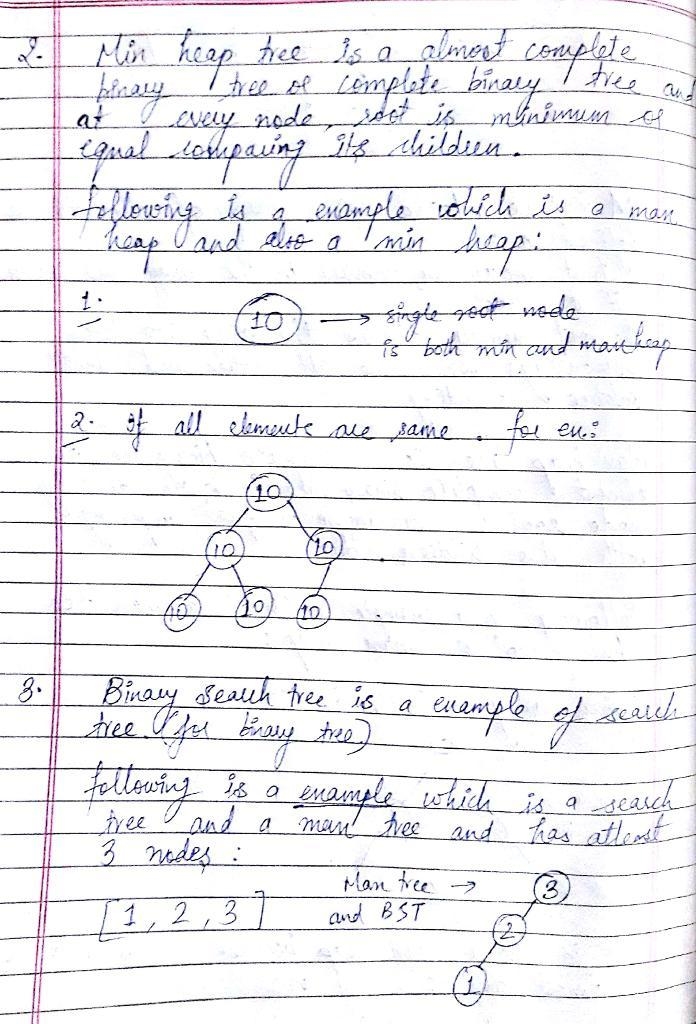 2. Min heap tree is a almost complete
binary tree or complete binary tree and
at every node, root is minimum or
equal comparing its children.
following is a example which is a max
heap and also a min heap:
1. 10 → single root node
is both min and max heap
2. If all elements are same. for ex:
10
10 10
10 10 10
3. Binary Search tree is a example of search
tree. (for binary tree)
following is a example which is a search
tree and a max tree and has atleast
3 nodes:
Max tree → 3
[1, 2, 3] and BST 2
1